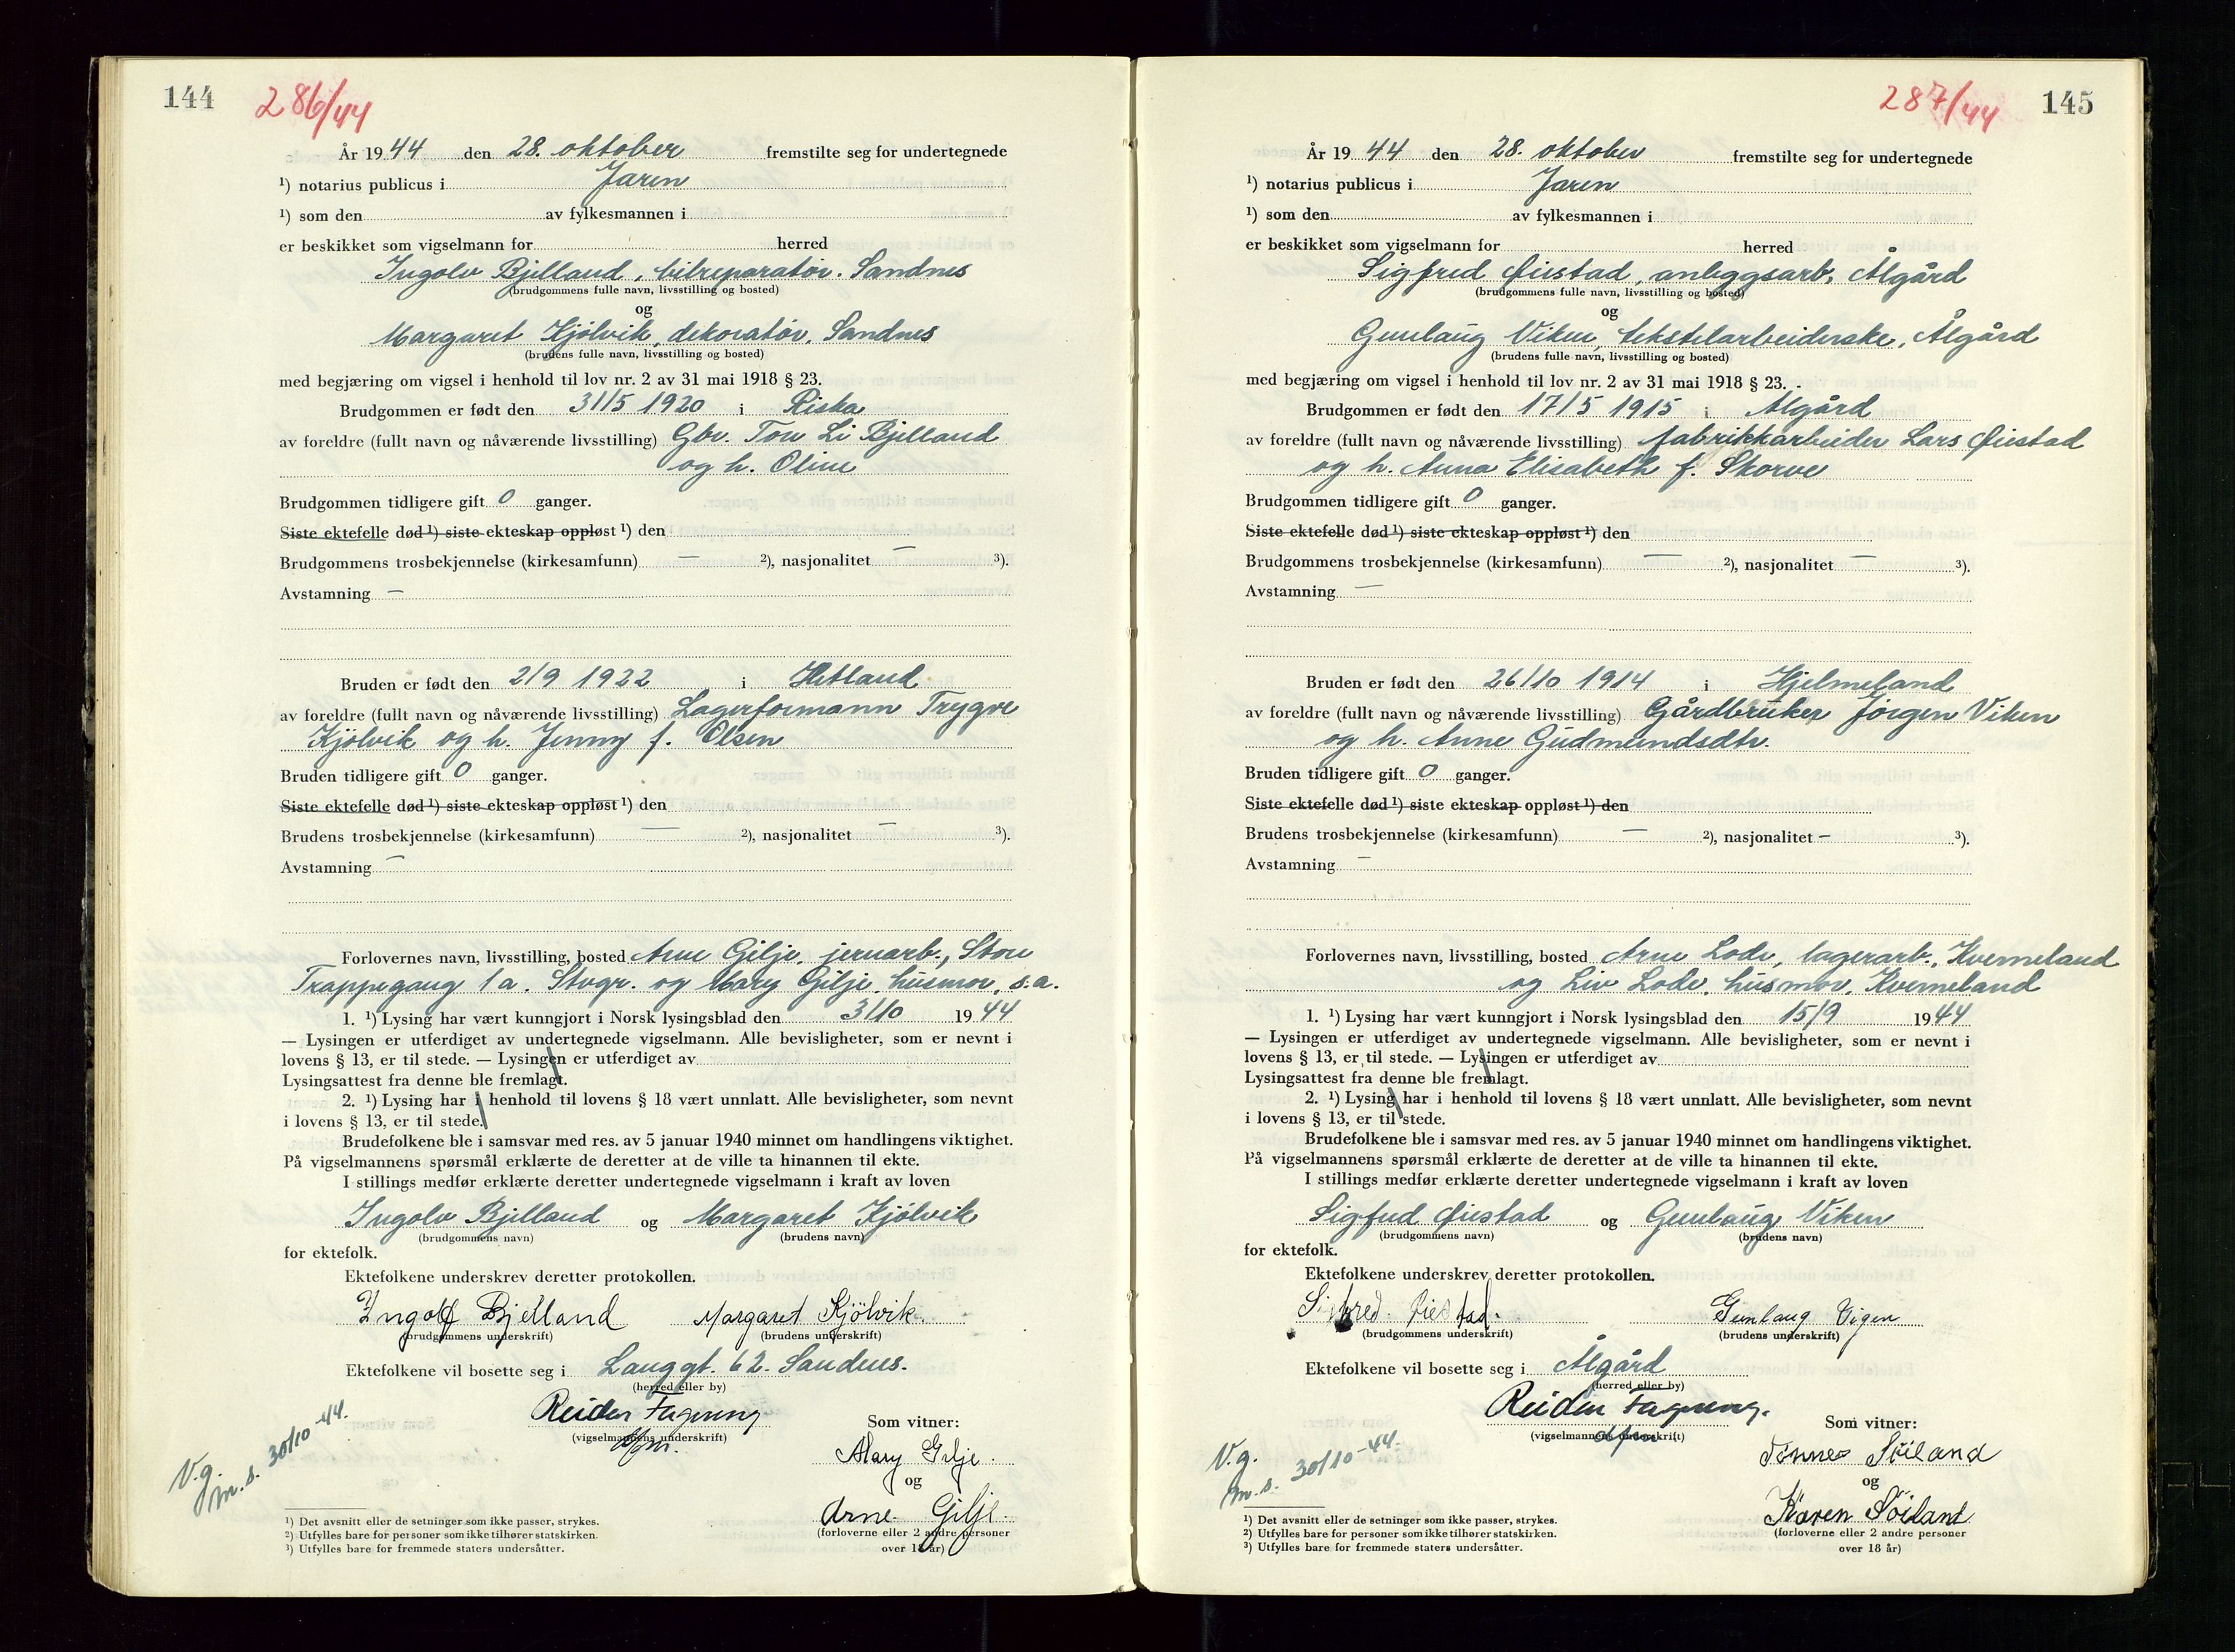 144
286/44
År 1944 den 28. oktober fremstilte seg for undertegnede
¹) notarius publicus i Jæren
¹) som den av fylkesmannen i
er beskikket som vigselmann for herred
Ingolv Bjelland, bilreparatør. Sandnes
(brudgommens fulle navn, livsstilling og bosted)
og
Margaret Kjölvik, dekoratør, Sandnes
(brudens fulle navn, livsstilling og bosted)
med begjæring om vigsel i henhold til lov nr. 2 av 31 mai 1918 § 23.
Brudgommen er født den 31/5 1920 i Riska
av foreldre (fullt navn og nåværende livsstilling) Gbr. Tou Li Bjelland
og h. Oline
Brudgommen tidligere gift 0 ganger.
Siste ektefelle død ¹) siste ekteskap oppløst ¹) den
Brudgommens trosbekjennelse (kirkesamfunn) — ²), nasjonalitet — ³).
Avstamning —
Bruden er født den 2/9 1922 i Hetland
av foreldre (fullt navn og nåværende livsstilling) Lagerformann Trygve
Kjölvik og h. Jenny f. Olsen
Bruden tidligere gift 0 ganger.
Siste ektefelle død ¹) siste ekteskap oppløst ¹) den
Brudens trosbekjennelse (kirkesamfunn) — ²), nasjonalitet — ³).
Avstamning —
Forlovernes navn, livsstilling, bosted Arne Gilje, jernarb., Store
Trappegang 1a. Stvgr. og Mary Gilje, husmor, s.a.
1. ¹) Lysing har vært kunngjort i Norsk lysingsblad den 3/10 1944
— Lysingen er utferdiget av undertegnede vigselmann. Alle bevisligheter, som er nevnt i
lovens § 13, er til stede. — Lysingen er utferdiget av
Lysingsattest fra denne ble fremlagt.
2. ¹) Lysing har i henhold til lovens § 18 vært unnlatt. Alle bevisligheter, som nevnt
i lovens § 13, er til stede.
Brudefolkene ble i samsvar med res. av 5 januar 1940 minnet om handlingens viktighet.
På vigselmannens spørsmål erklærte de deretter at de ville ta hinannen til ekte.
I stillings medfør erklærte deretter undertegnede vigselmann i kraft av loven
Ingolv Bjelland og Margaret Kjölvik
(brudgommens navn) (brudens navn)
for ektefolk.
Ektefolkene underskrev deretter protokollen.
Ingolf Bjelland Margaret Kjölvik.
(brudgommens underskrift) (brudens underskrift)
Ektefolkene vil bosette seg i Langgt. 62. Sandnes.
(herred eller by)
Reidar Fagerung
(vigselmannens underskrift)
Som vitner:
Mary Gilje.
og
Arne Gilje.
(forloverne eller 2 andre personer
over 18 år)
V.g.
m.s. 30/10-44.
¹) Det avsnitt eller de setninger som ikke passer, strykes.
²) Utfylles bare for personer som ikke tilhører statskirken.
³) Utfylles bare for fremmede staters undersåtter.
145
287/44
År 1944 den 28. oktober fremstilte seg for undertegnede
¹) notarius publicus i Jæren
¹) som den av fylkesmannen i
er beskikket som vigselmann for herred
Sigfred Øiestad, anleggsarb., Ålgård
(brudgommens fulle navn, livsstilling og bosted)
og
Gunlaug Viken, tekstilarbeiderske, Ålgård
(brudens fulle navn, livsstilling og bosted)
med begjæring om vigsel i henhold til lov nr. 2 av 31 mai 1918 § 23.
Brudgommen er født den 17/5 1915 i Ålgård
av foreldre (fullt navn og nåværende livsstilling) fabrikkarbeider Lars Øiestad
og h. Anna Elisabeth f. Skorve
Brudgommen tidligere gift 0 ganger.
Siste ektefelle død ¹) siste ekteskap oppløst ¹) den
Brudgommens trosbekjennelse (kirkesamfunn) — ²), nasjonalitet — ³).
Avstamning —
Bruden er født den 26/10 1914 i Hjelmeland
av foreldre (fullt navn og nåværende livsstilling) Gårdbruker Jörgen Viken
og h. Anne Gudmundsdtr.
Bruden tidligere gift 0 ganger.
Siste ektefelle død ¹) siste ekteskap oppløst ¹) den
Brudens trosbekjennelse (kirkesamfunn) — ²), nasjonalitet — ³).
Avstamning —
Forlovernes navn, livsstilling, bosted Arne Lode, lagerarb., Kverneland
og Liv Lode, husmor, Kverneland
1. ¹) Lysing har vært kunngjort i Norsk lysingsblad den 15/9 1944
— Lysingen er utferdiget av undertegnede vigselmann. Alle bevisligheter, som er nevnt i
lovens § 13, er til stede. — Lysingen er utferdiget av
Lysingsattest fra denne ble fremlagt.
2. ¹) Lysing har i henhold til lovens § 18 vært unnlatt. Alle bevisligheter, som nevnt
i lovens § 13, er til stede.
Brudefolkene ble i samsvar med res. av 5 januar 1940 minnet om handlingens viktighet.
På vigselmannens spørsmål erklærte de deretter at de ville ta hinannen til ekte.
I stillings medfør erklærte deretter undertegnede vigselmann i kraft av loven
Sigfred Øiestad og Gunlaug Viken
(brudgommens navn) (brudens navn)
for ektefolk.
Ektefolkene underskrev deretter protokollen.
Sigfred. Øiestad. Gunlaug Vigen
(brudgommens underskrift) (brudens underskrift)
Ektefolkene vil bosette seg i Ålgård
(herred eller by)
Reidar Fagerung.
(vigselmannens underskrift)
Som vitner:
Tönnes Söiland
og
Karen Söiland
(forloverne eller 2 andre personer
over 18 år)
V.g.
m.s. 30/10-44.
¹) Det avsnitt eller de setninger som ikke passer, strykes.
²) Utfylles bare for personer som ikke tilhører statskirken.
³) Utfylles bare for fremmede staters undersåtter.